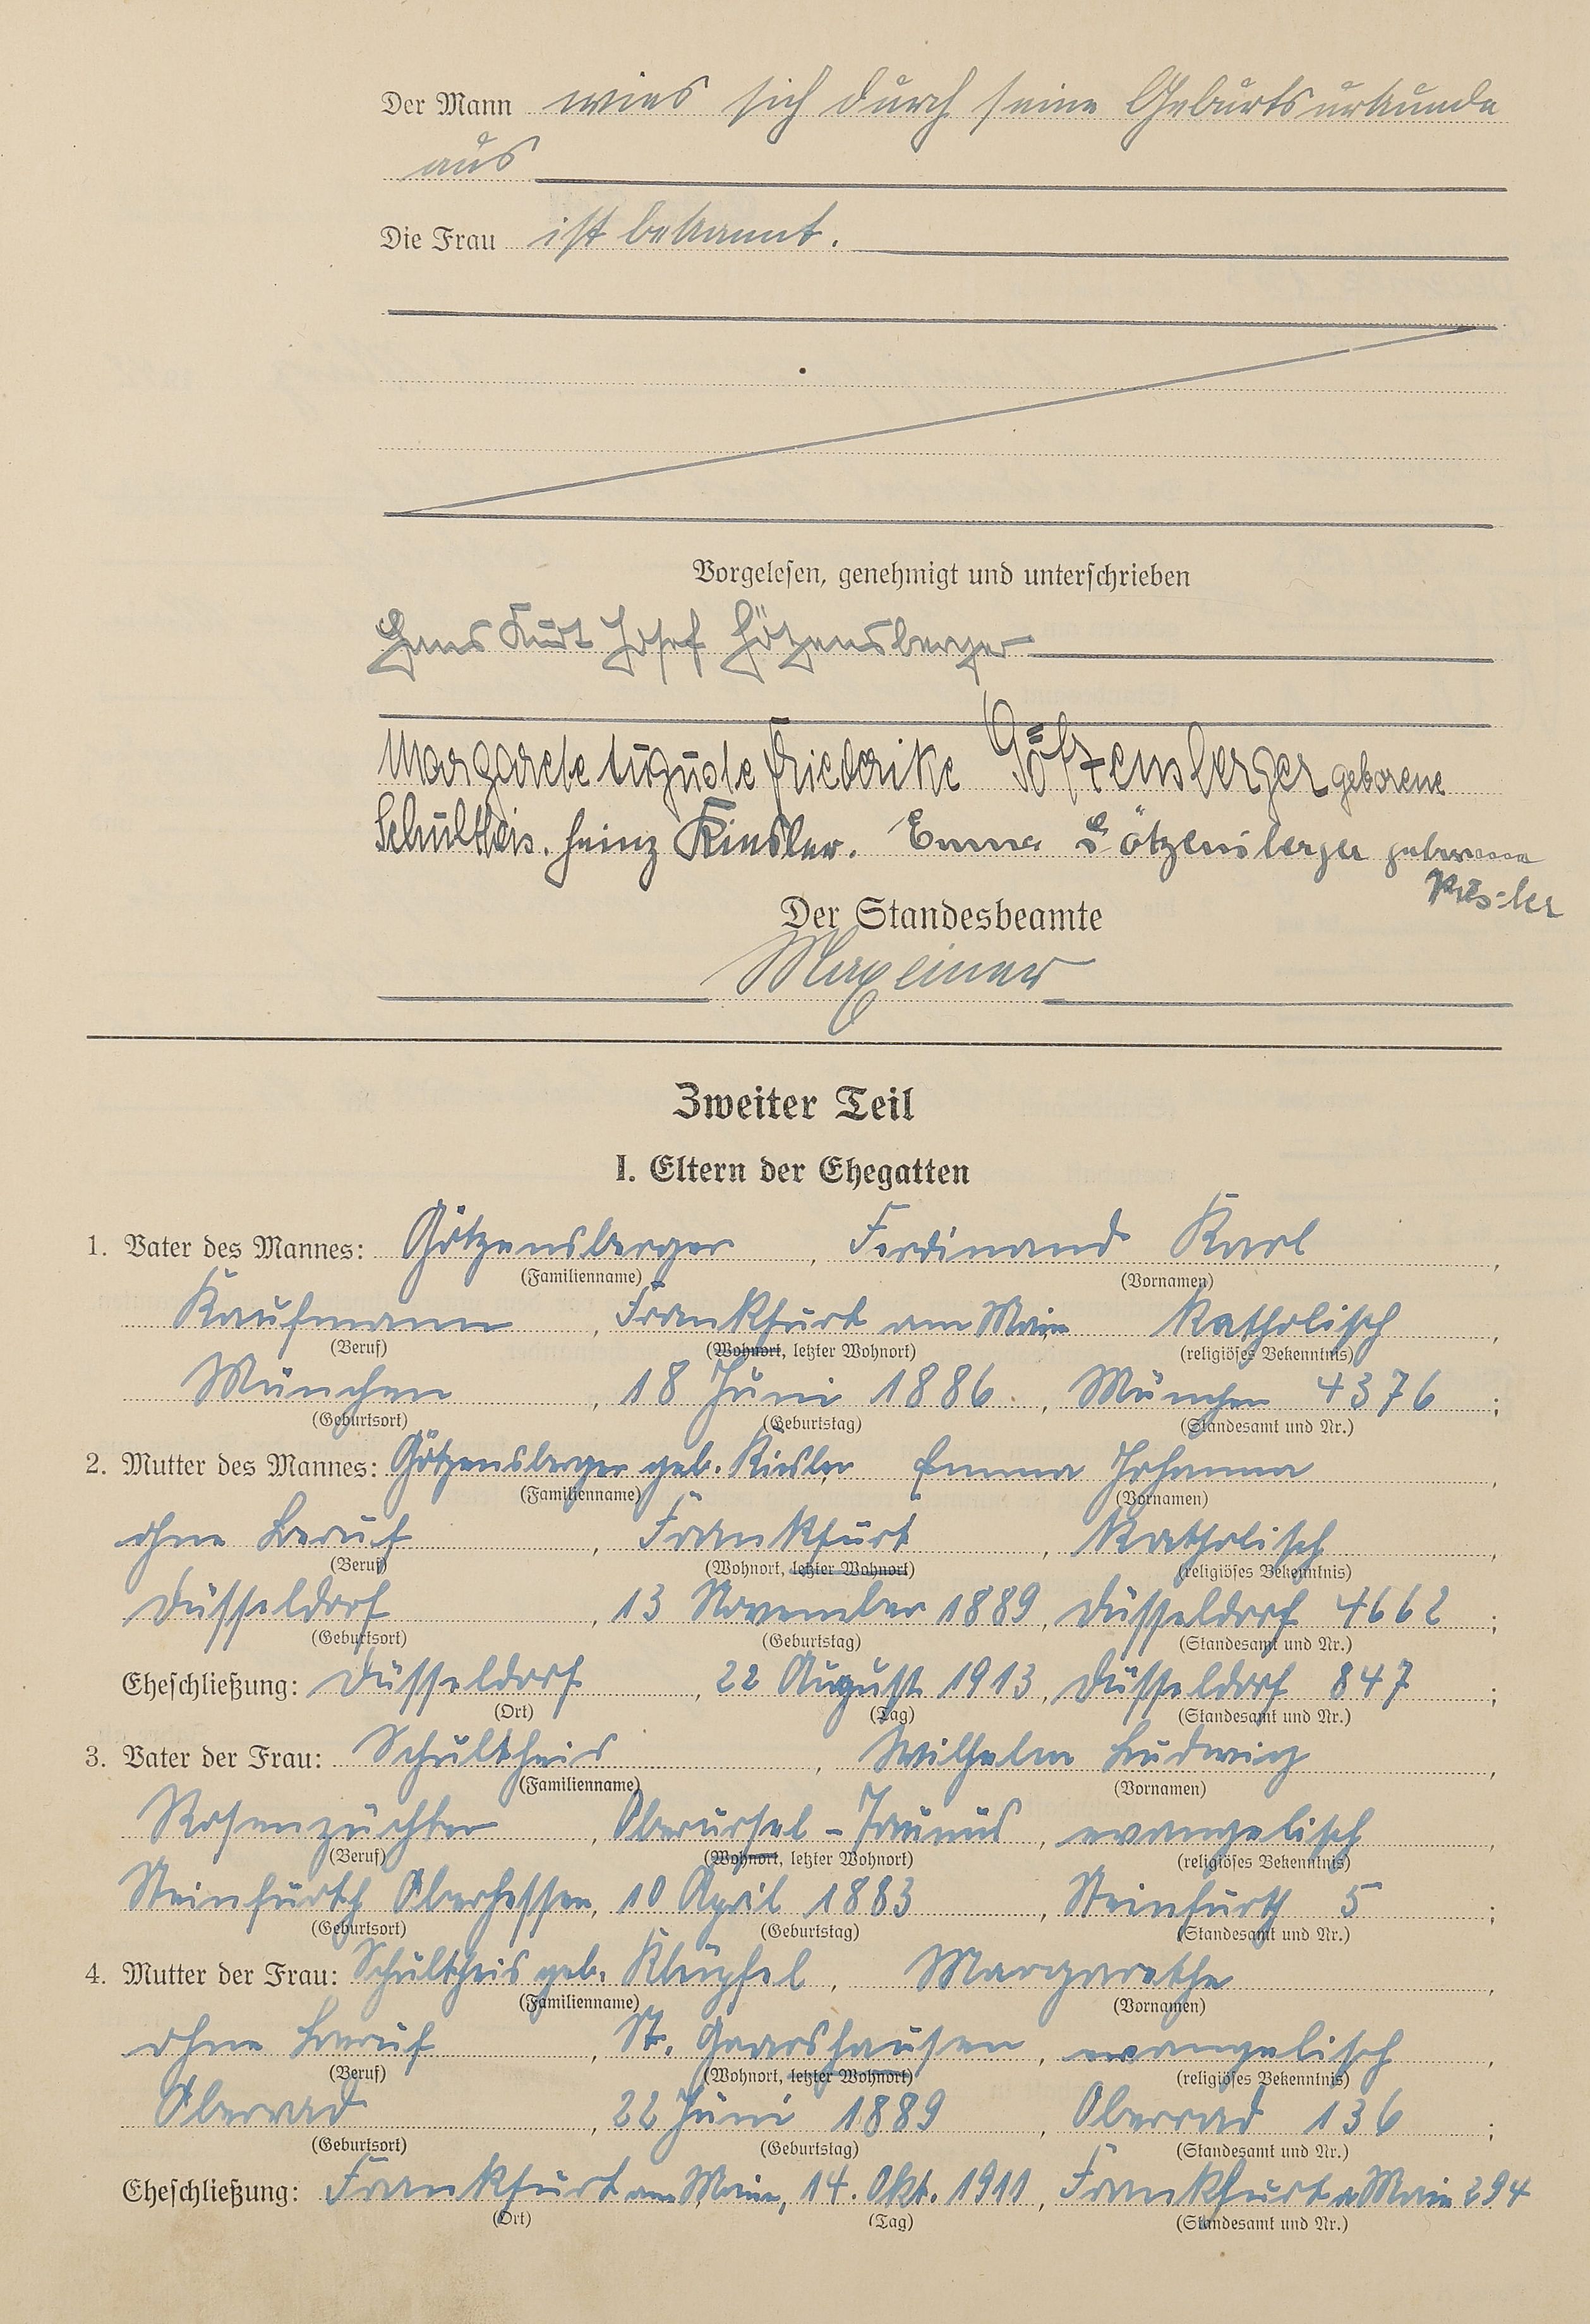 Der Mann wies sich durch seine Geburtsurkunde
aus
Die Frau ist bekannt.
Vorgelesen, genehmigt und unterschrieben
Hans Kurt Josef Götzensberger
Margarete Auguste Friederike Götzensberger geborene
Schultheis. Heinz Kiesler. Emma Götzensberger geborene
Kiesler
Der Standesbeamte
Maxeiner
Zweiter Teil
I. Eltern der Ehegatten
1. Vater des Mannes: Götzensberger, Ferdinand Karl,
(Familienname) (Vornamen)
Kaufmann, Frankfurt am Main Katholisch,
(Beruf) (Wohnort, letzter Wohnort) (religiöses Bekenntnis)
München, 18 Juni 1886., München 4376;
(Geburtsort) (Geburtstag) (Standesamt und Nr.)
2. Mutter des Mannes: Götzensberger geb. Kiesler Emma Johanna,
(Familienname) (Vornamen)
ohne Beruf, Frankfurt, Katholisch,
(Beruf) (Wohnort, letzter Wohnort) (religiöses Bekenntnis)
Düsseldorf, 13 November 1889, Düsseldorf 4662;
(Geburtsort) (Geburtstag) (Standesamt und Nr.)
Eheschließung: Düsseldorf, 22 August 1913, Düsseldorf 847;
(Ort) (Tag) (Standesamt und Nr.)
3. Vater der Frau: Schultheis, Wilhelm Ludwig,
(Familienname) (Vornamen)
Rosenzüchter, Oberursel-Taunus, evangelisch,
(Beruf) (Wohnort, letzter Wohnort) (religiöses Bekenntnis)
Steinfurth Oberhessen, 10 April 1883, Steinfurth 5;
(Geburtsort) (Geburtstag) (Standesamt und Nr.)
4. Mutter der Frau: Schultheis geb. Klüpfel, Margarethe,
(Familienname) (Vornamen)
ohne Beruf, St. Goarshausen, evangelisch,
(Beruf) (Wohnort, letzter Wohnort) (religiöses Bekenntnis)
Oberrad, 22 Juni 1889, Oberrad 136;
(Geburtsort) (Geburtstag) (Standesamt und Nr.)
Eheschließung: Frankfurt am Main, 14. Okt. 1911, Frankfurt a Main 294
(Ort) (Tag) (Standesamt und Nr.)